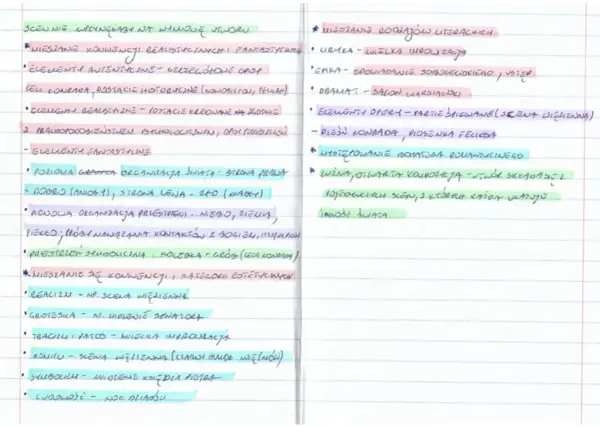 SCEN NIE WPŁYWAJĄCY NA WYMOWĘ UTWORU
* MIESZANIE KONWENCJI REALISTYCZNYCH I FANTASTYCZNYCH
• ELEMENTY AUTENTYCZNE - SZCZEGÓŁOWE OPISY
CELI KONRADA, POSTACIE HISTORYCZNE (NOWOSILCOW, PELIKAN)
• ELEMENTY REALISTYCZNE - POSTACIE KREOWANE NA ZGODNIE
Z PRAWDOPODOBIEŃSTWEM PSYCHOLOGICZNYM, OPISY
- ELEMENTY FANTASTYCZNE
• POZIOMA ORGANIZACJA ŚWIATA - STRONA PRAWA
- DOBRO (ANIOŁY), STRONA LEWA - ZŁO (DIABŁY)
• PIONOWA ORGANIZACJA PRZESTRZENI - NIEBO, ZIEMIA,
PIEKŁO, PRÓBY NAWIĄZANIA KONTAKTÓW Z BOGIEM,
• PRZESTRZEŃ SYMBOLICZNA - KOLEBKA - GRÓB (CELA KONRADA)
* MIESZANIE SIĘ KONWENCJI, KATEGORII ESTETYCZNYCH
• REALIZM - NP. SCENA WIĘZIENNA
• GROTESKA - NP. WIDZENIE SENATORA
• TRAGIZM I PATOS - WIELKA IMPROWIZACJA
• KOMIZM - SCENA WIĘZIENNA (CZARNY HUMOR WIĘŹNIÓW)
• SYMBOLIZM - WIDZENIE KSIĘDZA PIOTRA
• LUDOWOŚĆ - NOC DZIADÓW
* MIESZANIE RODZAJÓW LITERACKICH
• LIRYKA - WIELKA IMPROWIZACJA
• EPIKA - OPOWIADANIE SOBOLEWSKIEGO, WSTĘP
• DRAMAT - SALON WARSZAWSKI
• ELEMENTY OPERY - PARTIE ŚPIEWANE (SCENA WIĘZIENNA)
- PIEŚŃ KONRADA, PIOSENKA FELIKSA
* WYSTĘPOWANIE BOHATERA ROMANTYCZNEGO
* LUŹNA, OTWARTA KOMPOZYCJA - UTWÓR SKŁADA SIĘ Z
POJEDYNCZYCH SCEN, Z KTÓRYCH KAŻDA UKAZUJE
INNOŚĆ ŚWIATA